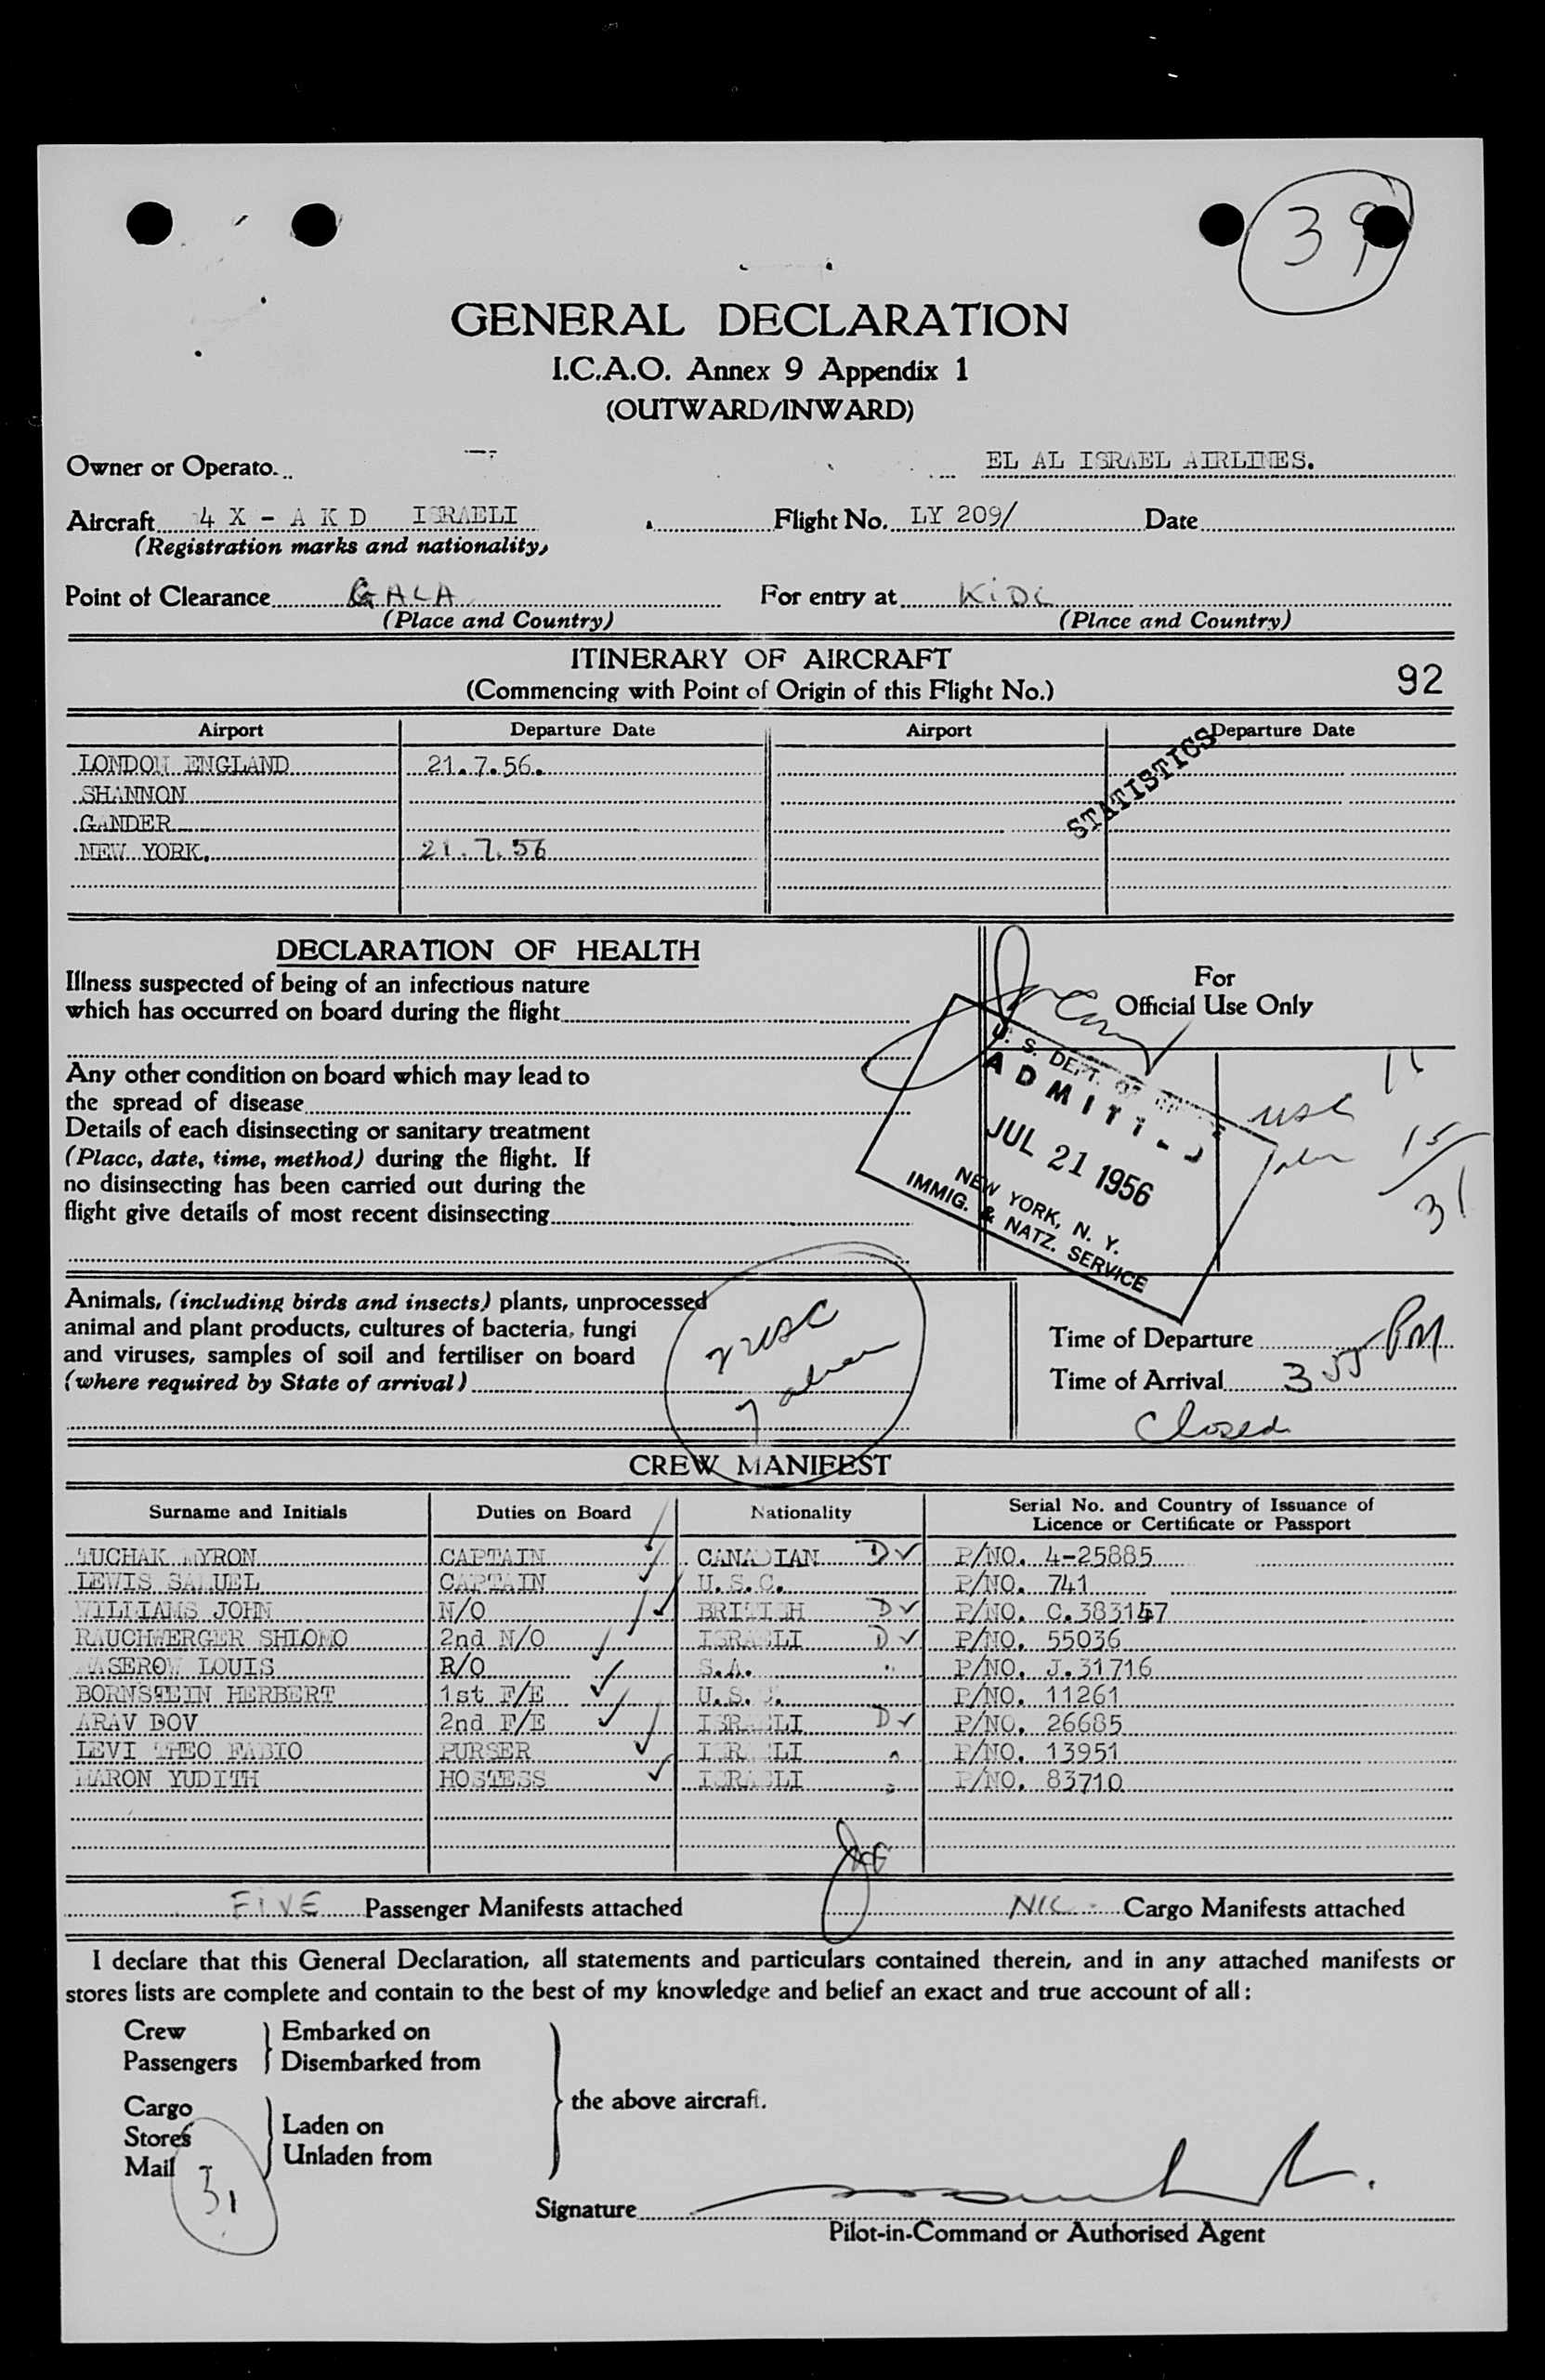 39
GENERAL DECLARATION
I.C.A.O. Annex 9 Appendix 1
(OUTWARD/INWARD)
Owner or Operato. EL AL ISRAEL AIRLINES.
Aircraft 4 X - A K D ISRAELI Flight No. LY 209/ Date
(Registration marks and nationality)
Point of Clearance GALA For entry at KIDL
(Place and Country) (Place and Country)
ITINERARY OF AIRCRAFT
(Commencing with Point of Origin of this Flight No.) 92
Airport Departure Date Airport Departure Date
STATISTICS
LONDON ENGLAND 21.7.56.
SHANNON
GANDER
NEW YORK. 21.7.56
DECLARATION OF HEALTH
Illness suspected of being of an infectious nature
which has occurred on board during the flight
For
Official Use Only
Any other condition on board which may lead to
the spread of disease
Details of each disinsecting or sanitary treatment
(Place, date, time, method) during the flight. If
no disinsecting has been carried out during the
flight give details of most recent disinsecting
U. S. DEPT. OF
ADMITTED
JUL 21 1956
NEW YORK, N. Y.
IMMIG. & NATZ. SERVICE
usc
15
31
Animals, (including birds and insects) plants, unprocessed
animal and plant products, cultures of bacteria, fungi
and viruses, samples of soil and fertiliser on board
(where required by State of arrival)
2 usc
7 alien
Time of Departure
Time of Arrival 3 55 PM
Closed
CREW MANIFEST
Surname and Initials Duties on Board Nationality Serial No. and Country of Issuance of
Licence or Certificate or Passport
TUCHAK MYRON CAPTAIN CANADIAN D✓ P/NO. 4-25885
LEWIS SAMUEL CAPTAIN U.S.C. P/NO. 741
WILLIAMS JOHN N/O BRITISH D✓ P/NO. C.383157
RAUCHWERGER SHLOMO 2nd N/O ISRAELI D✓ P/NO. 55036
LOUIS R/O S.A. " P/NO. J.31716
BORNSTEIN HERBERT 1st F/E U.S. P/NO. 11261
ARAV DOV 2nd F/E ISRAELI D✓ P/NO. 26685
LEVI THEO FABIO PURSER ISRAELI " P/NO. 13951
MARON YUDITH HOSTESS ISRAELI " P/NO. 83710
FIVE Passenger Manifests attached NIL Cargo Manifests attached
I declare that this General Declaration, all statements and particulars contained therein, and in any attached manifests or
stores lists are complete and contain to the best of my knowledge and belief an exact and true account of all:
Crew Embarked on
Passengers Disembarked from
the above aircraft.
Cargo
Stores Laden on
Mail Unladen from
31
Signature
Pilot-in-Command or Authorised Agent